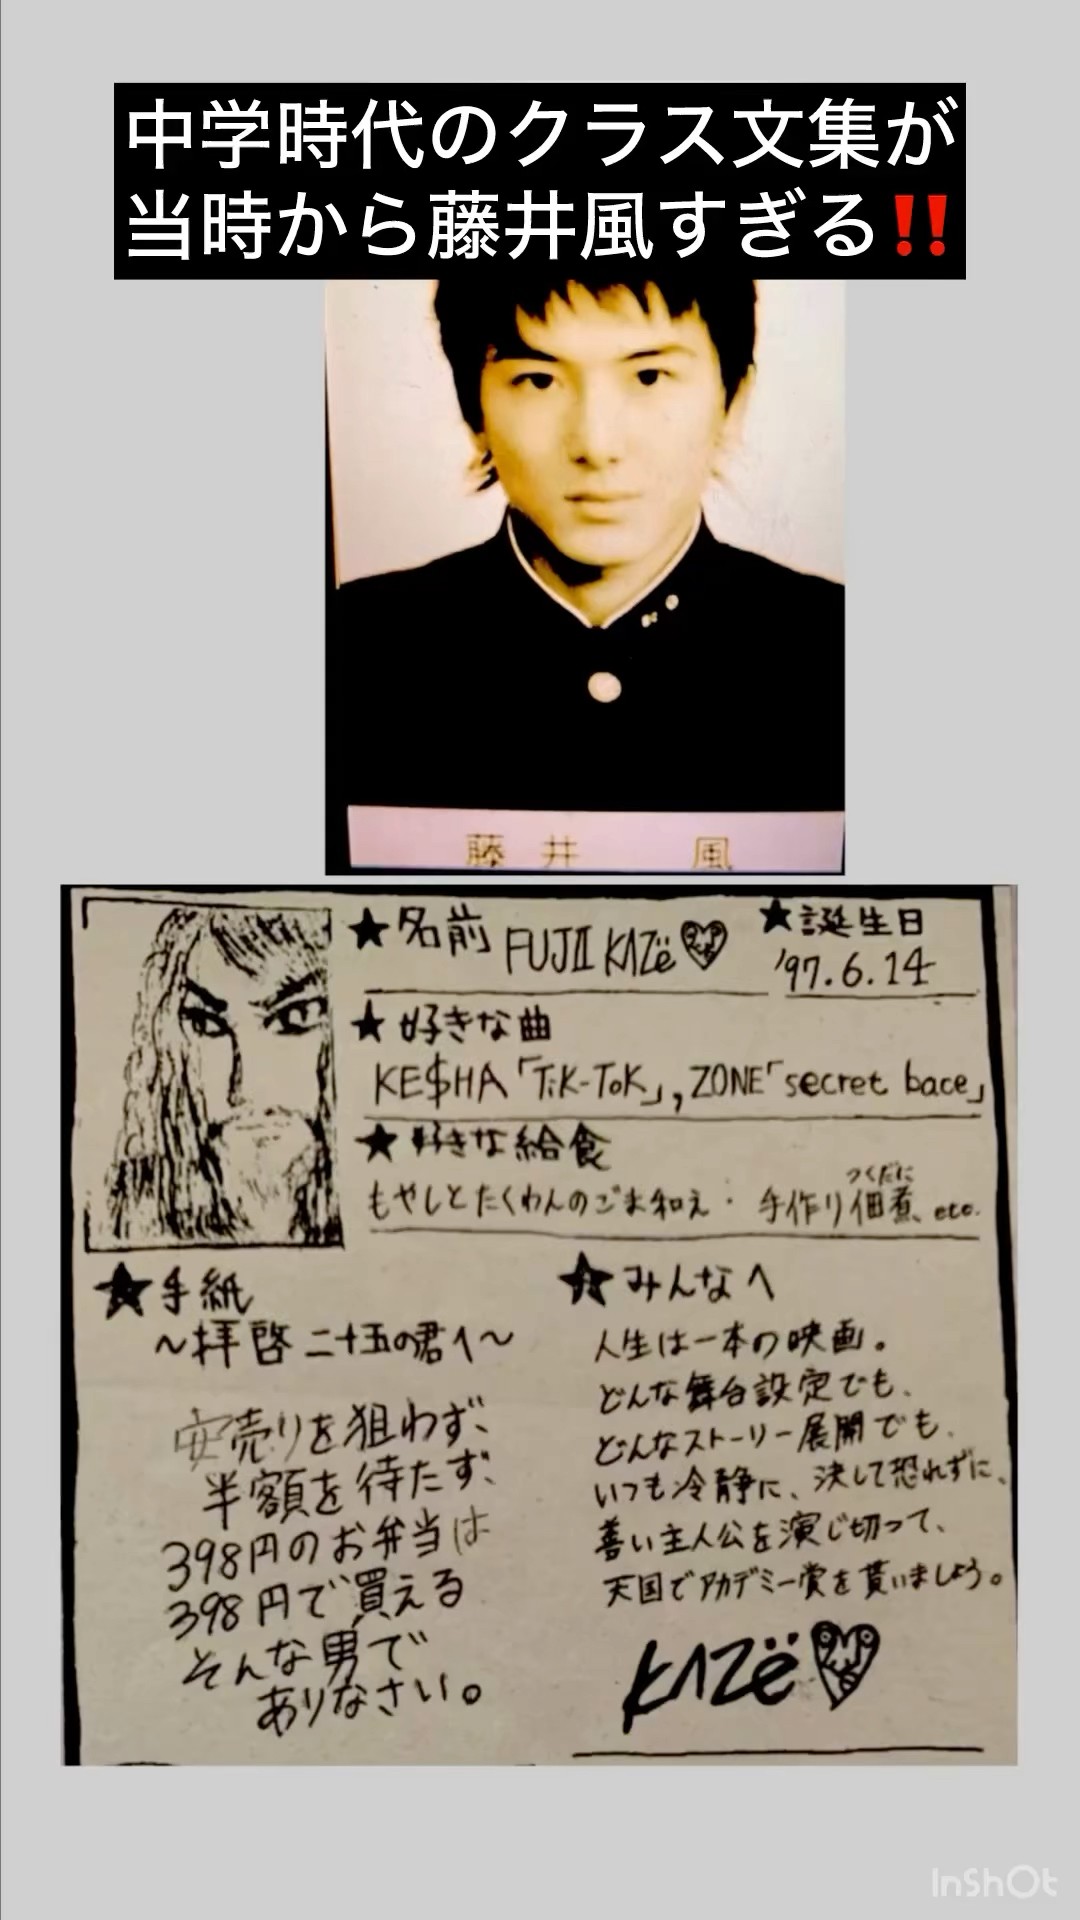 中学時代のクラス文集が
当時から藤井風すぎる‼️
藤井 風
★名前 FUJII KAZë
★誕生日
'97.6.14
★好きな曲
KE$HA「TiK-ToK」,ZONE「secret bace」
★好きな給食
もやしとたくわんのごま和え・手作り佃煮、etc.
つくだに
★手紙
〜拝啓 二十五の君へ〜
安売りを狙わず、
半額を待たず、
398円のお弁当は
398円で買える
そんな男で
ありなさい。
★みんなへ
人生は一本の映画。
どんな舞台設定でも、
どんなストーリー展開でも、
いつも冷静に、決して恐れずに、
善い主人公を演じ切って、
天国でアカデミー賞を貰いましょう。
KAZë
InShOt